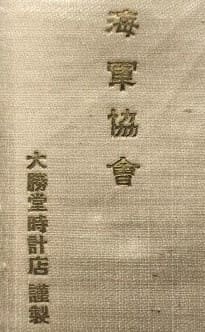 海軍協會
大勝堂時計店 謹製